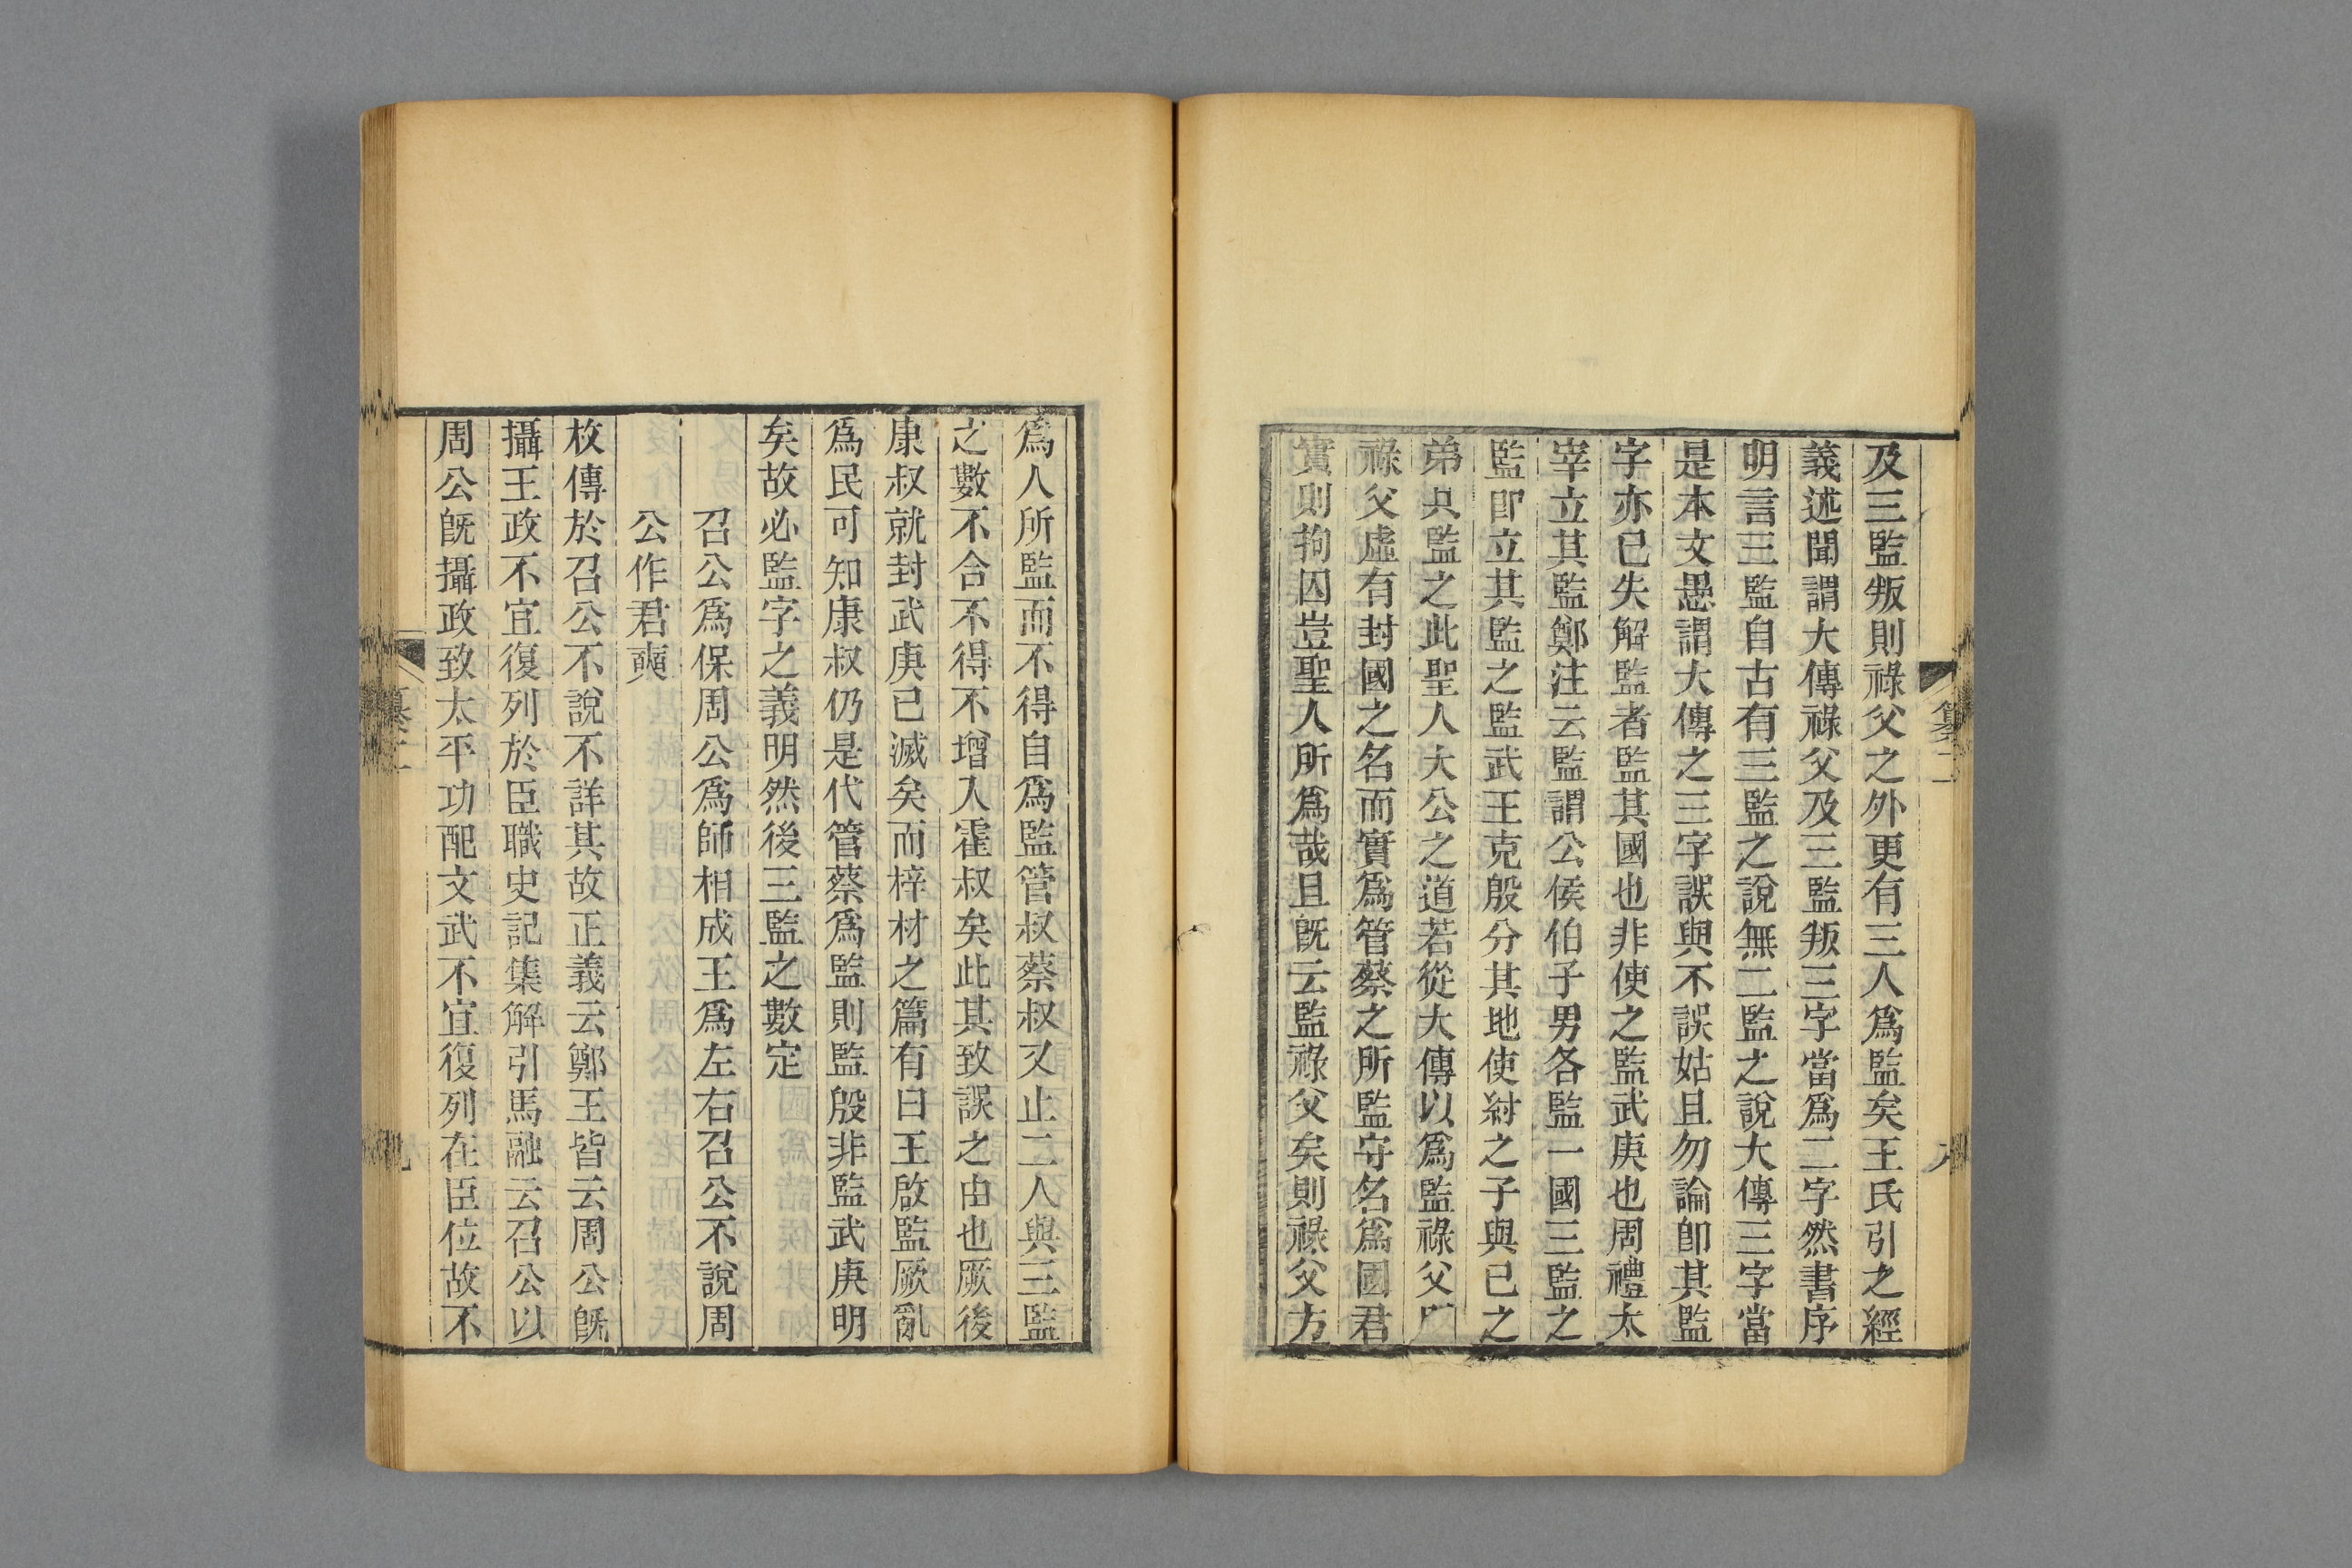 及三監叛則祿父之外更有三人爲監矣王氏引之經
義述聞謂大傳祿父及三監叛三字當爲二字然書序
明言三監自古有三監之說無二監之說大傳三字當
是本文愚謂大傳之三字誤與不誤姑且勿論卽其監
字亦已失解監者監其國也非使之監武庚也周禮太
宰立其監鄭注云監謂公侯伯子男各監一國三監之
監卽立其監之監武王克殷分其地使紂之子與已之
弟共監之此聖人大公之道若從大傳以爲監祿父
祿父虛有封國之名而實爲管蔡之所監守名爲國君
實則拘囚豈聖人所爲哉且旣云監祿父矣則祿父方
爲人所監而不得自爲監管叔蔡叔又止二人與三監
之數不合不得不增入霍叔矣此其致誤之由也厥後
康叔就封武庚已滅矣而梓材之篇有曰王啟監厥亂
爲民可知康叔仍是代管蔡爲監則監殷非監武庚明
矣故必監字之義明然後三監之數定
召公爲保周公爲師相成王爲左右召公不說周
公作君奭
枚傳於召公不說不詳其故正義云鄭王皆云周公旣
攝王政不宜復列於臣職史記集解引馬融云召公以
周公旣攝政致太平功配文武不宜復列在臣位故不
纂二
九